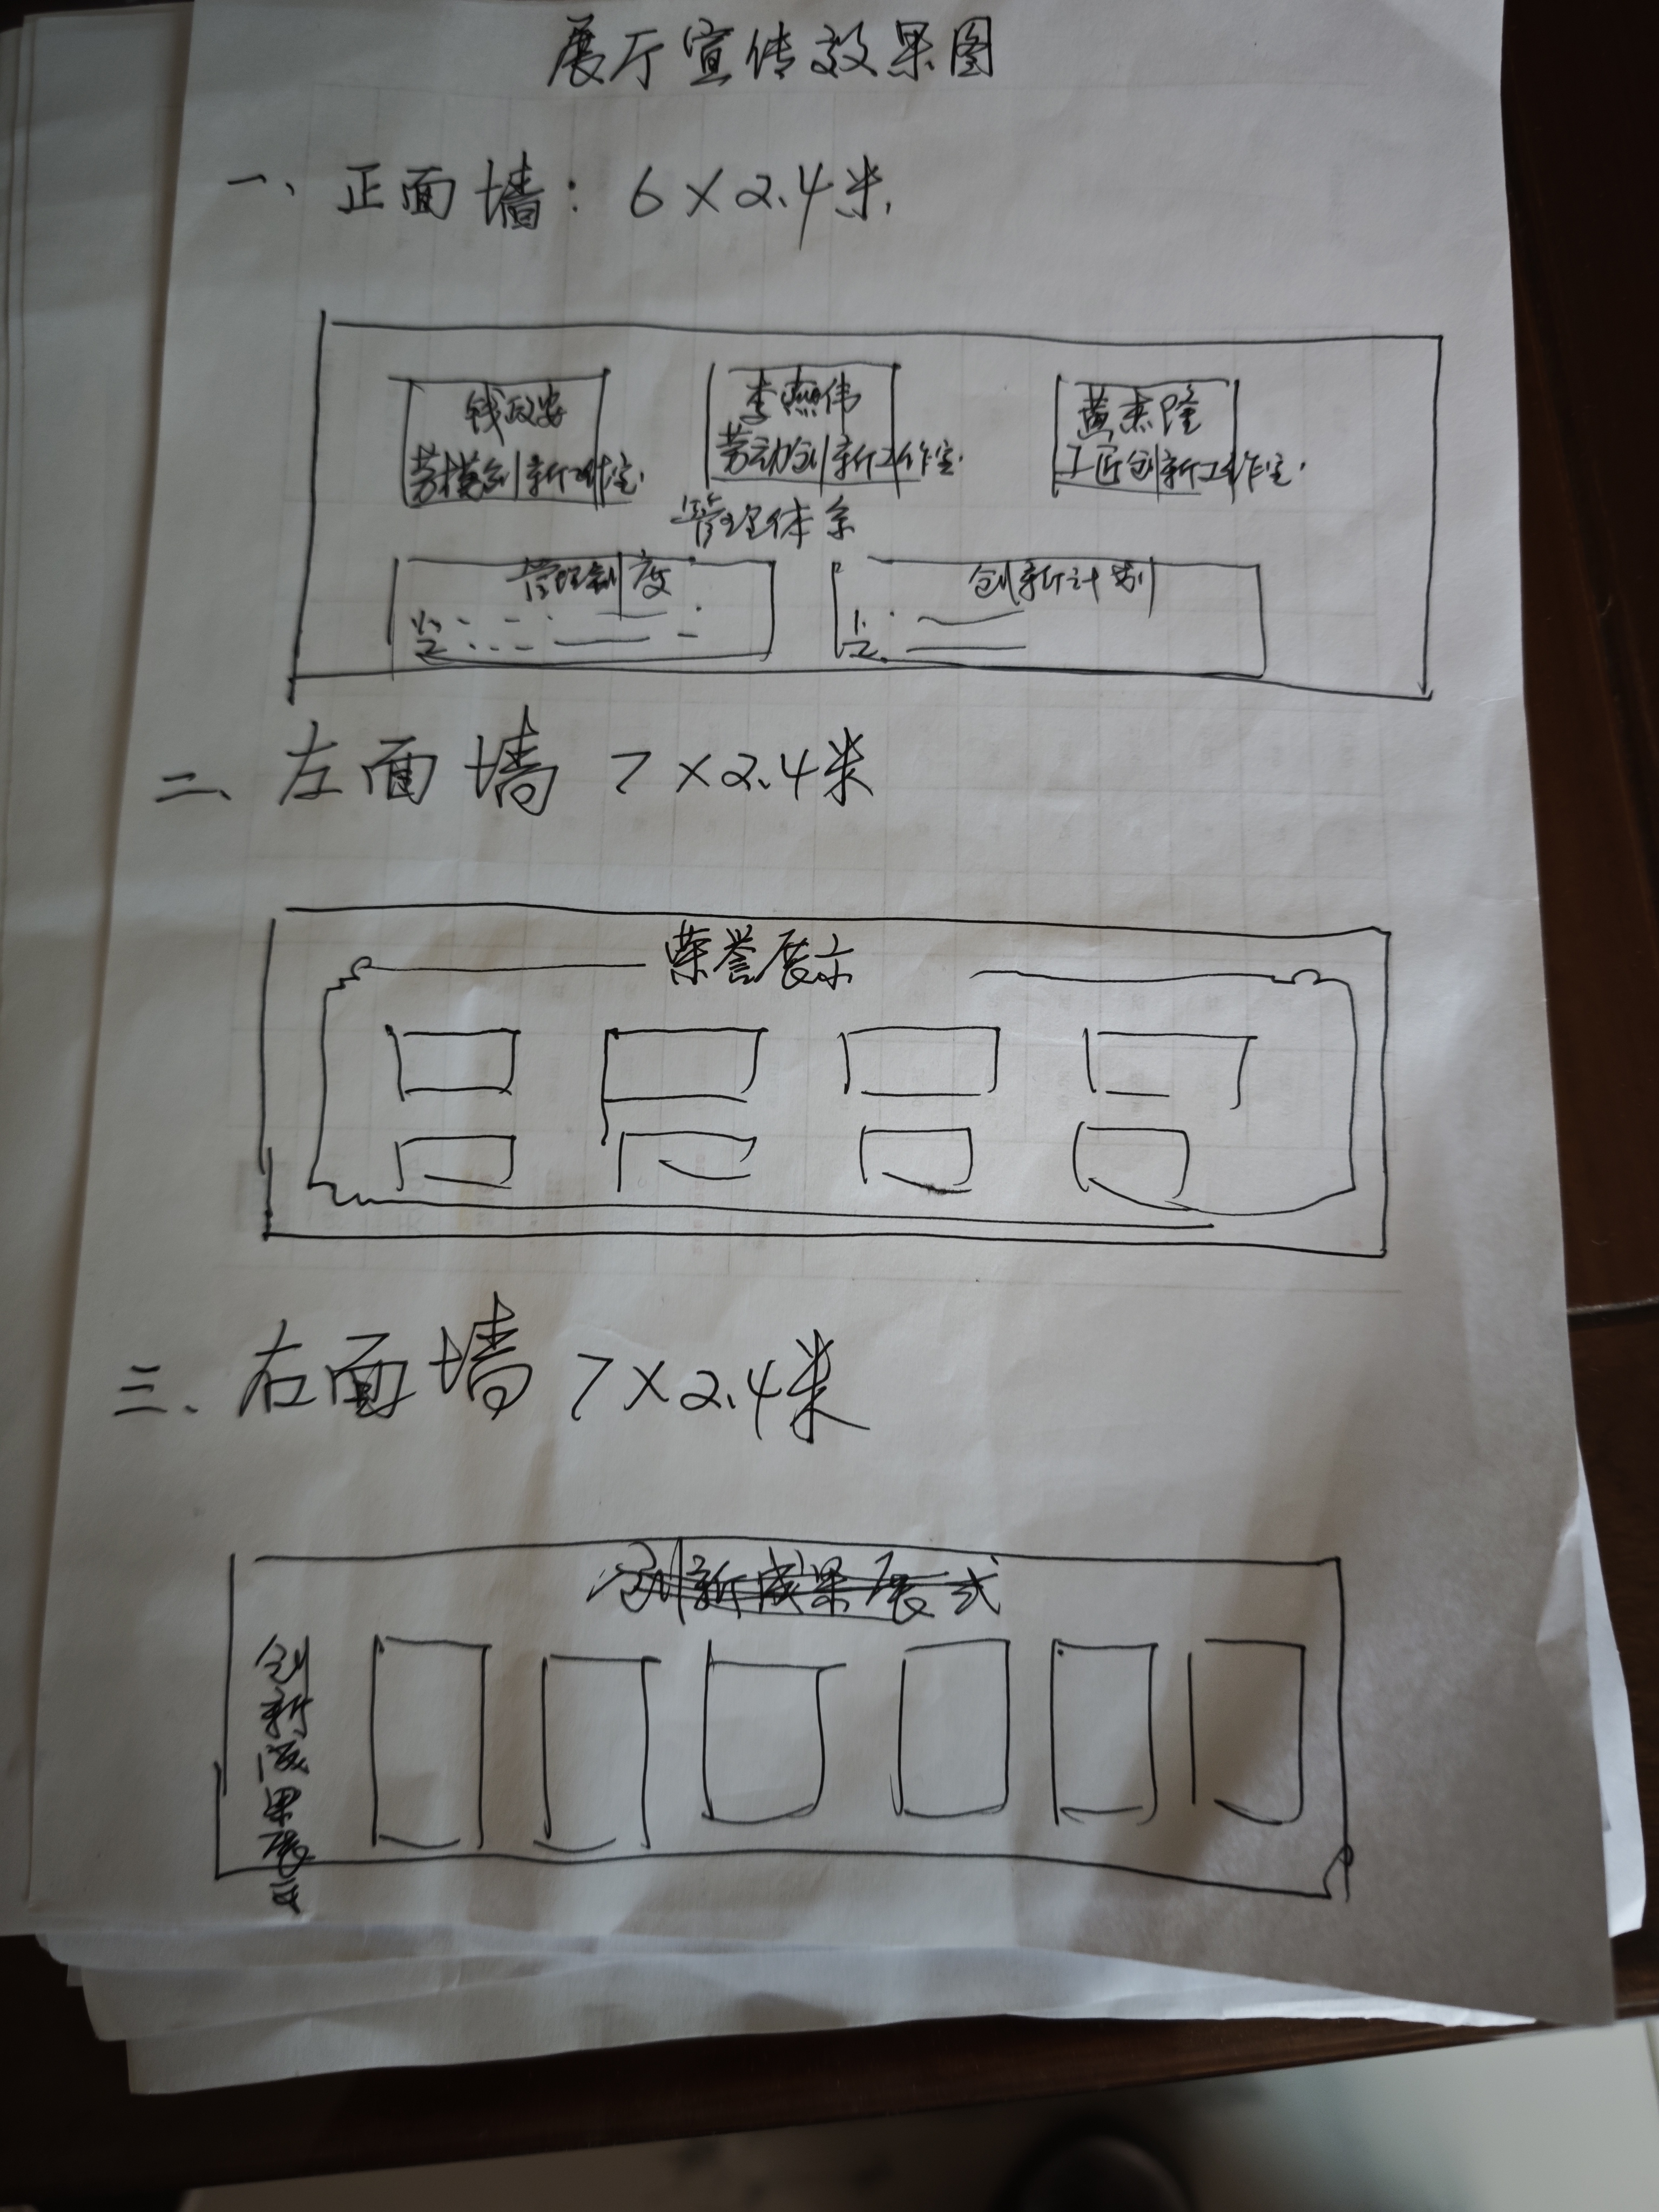 展厅宣传效果图
一、正面墙：6×2.4米.
钱政安
劳模创新工作室.
李燕伟
劳动创新工作室.
黄杰隆
工匠创新工作室.
管理体系
管理制度
1、
2、
创新计划
1.
2.
二、左面墙 7×2.4米
荣誉展示
三、右面墙 7×2.4米
创新成果展式
创新成果展